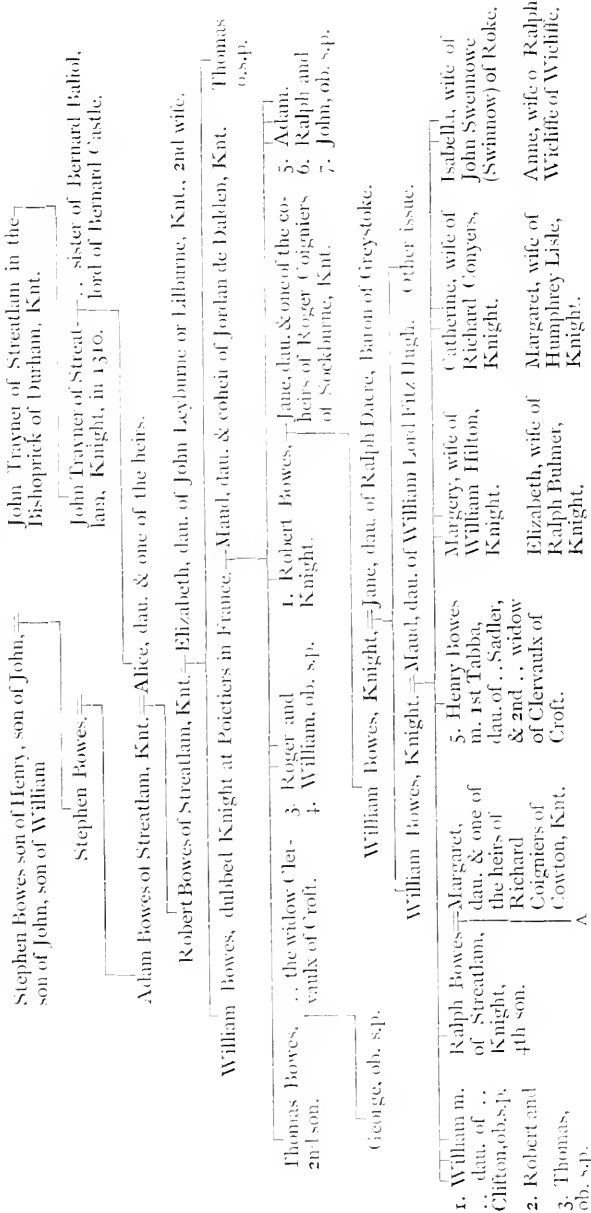 Stephen Bowes son of Henry, son of John,
son of John, son of William
John Trayner of Streatlam in the
Bishoprick of Durham, Knt.
Stephen Bowes.
John Trayner of Streat-
lam, Knight, in 1310.
.. sister of Bernard Baliol,
lord of Bernard Castle.
Adam Bowes of Streatlam, Knt.=Alice, dau. & one of the heirs.
Robert Bowes of Streatlam, Knt.=Elizabeth, dau. of John Leyburne or Lilburne, Knt., 2nd wife.
William Bowes, dubbed Knight at Poictiers in France.=Maud, dau. & coheir of Jordan de Dalden, Knt.
Thomas
o.s.p.
Thomas Bowes,
2nd son.
.. the widow Cler-
vaulx of Croft.
3. Roger and
4. William, ob. s.p.
1. Robert Bowes,
Knight.
=Jane, dau. & one of the co-
heirs of Roger Coigniers
of Sockburne, Knt.
5. Adam.
6. Ralph and
7. John, ob. s.p.
George, ob. s.p.
William Bowes, Knight.=Jane, dau. of Ralph Dacre, Baron of Greystoke.
William Bowes, Knight.=Maud, dau. of William Lord Fitz Hugh.
Other issue.
1. William m.
.. dau. of ..
Clifton, ob. s.p.
2. Robert and
3. Thomas,
ob. s.p.
Ralph Bowes
of Streatlam,
Knight,
4th son.
=Margaret,
dau. & one of
the heirs of
Richard
Coigniers of
Cowton, Knt.
A
5. Henry Bowes
m. 1st Tabba,
dau. of .. Sadler,
& 2nd .. widow
of Clervaulx of
Croft.
Margery, wife of
William Hilton,
Knight.
Elizabeth, wife of
Ralph Bulmer,
Knight.
Catherine, wife of
Richard Conyers,
Knight.
Margaret, wife of
Humphrey Lisle,
Knight.
Isabella, wife of
John Swennowe
(Swinnow) of Roke.
Anne, wife o Ralph
Wicliffe of Wicliffe.